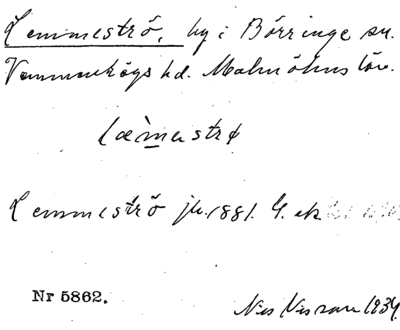 Lemmeströ, by i Börringe sn.
Vemmenhögs hd. Malmöhus län.
læ̀mestrø
Lemmeströ jb. 1881. G. ek
Nr 5862.
1934.